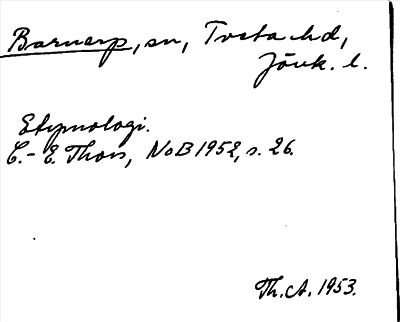 Barnarp, sn, Tveta hd,
Jönk. l.
Etymologi.
C.-E. Thors, NoB 1952, s. 26.
Th. A. 1953.